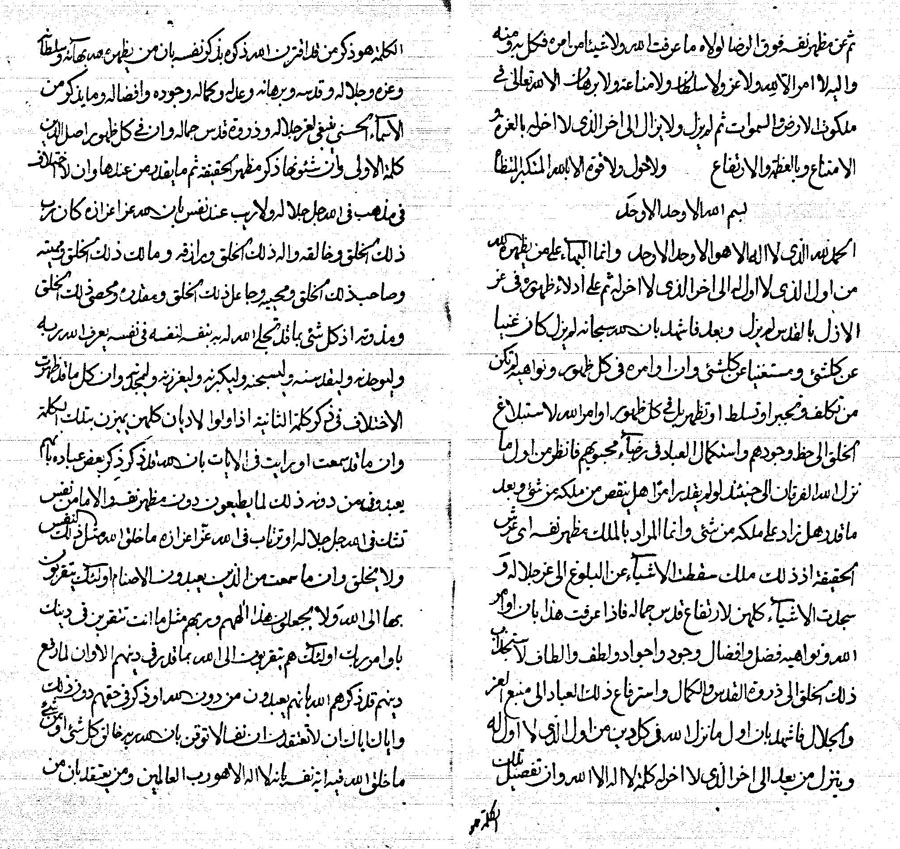 ثم عن مظهر نفسه فوق الرضا لولاه ما عرفت الله ولا شيئا من امره فكل به ومنه
واليه لا امر الا لله ولا عز ولا سلطان ولا مناعة ولا برهان الا لله تعالى في
ملكوت الارض والسموات ثم لم يزل ولا يزال الى اخر الذي لا اخر له بالعز و
الامتناع وبالعظمة والارتفاع ولا حول ولا قوة الا بالله المتكبر
بسم الله الاوحد الاوحد
الحمد لله الذي لا اله الا هو الاوحد الاوحد وانما البهاء على من يظهره الله
من اول الذي لا اول له الى اخر الذي لا اخر له ثم على ادلاء ظهوره في عز
الازل بالقدس لم يزل وبعد فاشهد بان الله سبحانه لم يزل كان غنيا
عن كلشئ ومستغنيا عن كلشئ وان اوامره في كل ظهور ونواهيه لم تكن
من تكلف وتجبر او تسلط او تظهر بل في كل ظهور اوامر الله لاستبلاغ
الخلق الى حظ وجودهم واستكمال العباد في رضاء محبوبهم فانظر من اول ما
نزل الله الفرقان الى حينئذ لو لم يقدر امرا هل ينقص من ملكه من شئ وبعد
ما قدر هل زاد على ملكه من شئ وانما المراد بالملك مظهر نفسه اي عرش
الحقيقة اذ ذلك ملك سقطت الاشياء عن البلوغ الى عز جلاله و
سجدت الاشياء كلهن لارتفاع قدس جماله فاذا عرفت هذا بان اوامر
الله ونواهيه فضل وافضال وجود واجواد ولطف والطاف لاستجذاب
ذلك الخلق الى ذروة القدس والكمال واسترفاع ذلك العباد الى منبع العز
والجلال فاشهد بان اول ما نزل الله في كل دين من اول الذي لا اول له
وينزل من بعد الى اخر الذي لا اخر له كلمة لا اله الا الله وان تفصيل تلك
الكلمة هو
الكلمة هو ذكر من قد اقترن الله ذكره بذكر نفسه بان من يظهره الله بهائه وسلطانه
وعزه وجلاله وقدسه وبرهانه وعدله وكماله وجوده وافضاله وما يذكر من
الاسماء الحسنى ينبغي لعز جلاله وذروة قدس جماله وان في كل ظهور اصل الدين
كلمة الاولى وان شئونها ذكر مظهر الحقيقة ثم ما يقدر من عندها وان لا اختلاف
في مذهب في الله جل جلاله ولا ريب عند نفس بان الله عز اعزازه كان رب
ذلك الخلق وخالقه واله ذلك الخلق ورازقه ومالك ذلك الخلق ومميته
وصاحب ذلك الخلق ومحييه وجاعل ذلك الخلق ومقدره ومحصي ذلك الخلق
ومذوته اذ كل شئ بما قد تجلى الله له به بنفسه لنفسه في نفسه يعرف الله ربه
وليوحدنه وليقدسنه وليسبحنه وليكبرنه وليعززنه وليمجدنه وان كل ما قد ظهرت
الاختلاف في ذكر كلمة الثانية اذ اولوا الاديان كلهن يعززن بتلك الكلمة
وان ما قد سمعت او رايت في الايات بان الله قد ذكر ذكر بعض عباده بانهم
يعبدونه من دونه ذلك لما يطيعون دون مظهر نفسه والا ما من نفس
تشك في الله جل جلاله او ترتاب في الله عز اعزازه ما خلق الله مثل ذلك النفس
ولا يخلق وان ما سمعت من الذين يعبدون الاصنام اولئك يتقربون
بها الى الله ولا يجعلن هذا الههم وربهم مثل ما انت تتقربن في دينك
باوامر ربك اولئك هم يتقربون الى الله بما قدر في دينهم الا وان لما رفع
دينهم قد ذكرهم الله بانهم يعبدون من دون الله او ذكر في حقهم دون ذلك
واياك اياك ان لا تعتقدن ان نفسا لا توقن بان الله ربه خالق كل شئ
ما خلق الله فيه اية نفسه بانه لا اله الا هو رب العالمين ومن يعتقد بان من